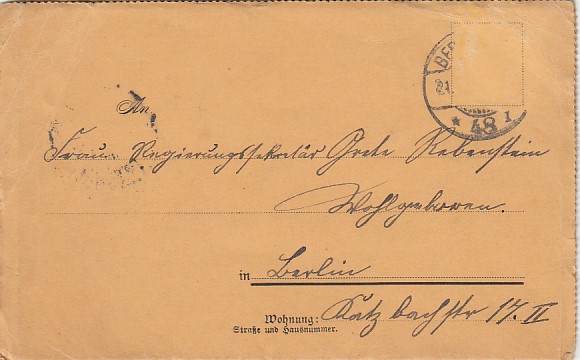 BER
21.
* 48 I
An
Frau Regierungssekretär Grete Rebenstein
Wohlgeboren.
in Berlin
Wohnung: Katzbachstr 17. II
Straße und Hausnummer.